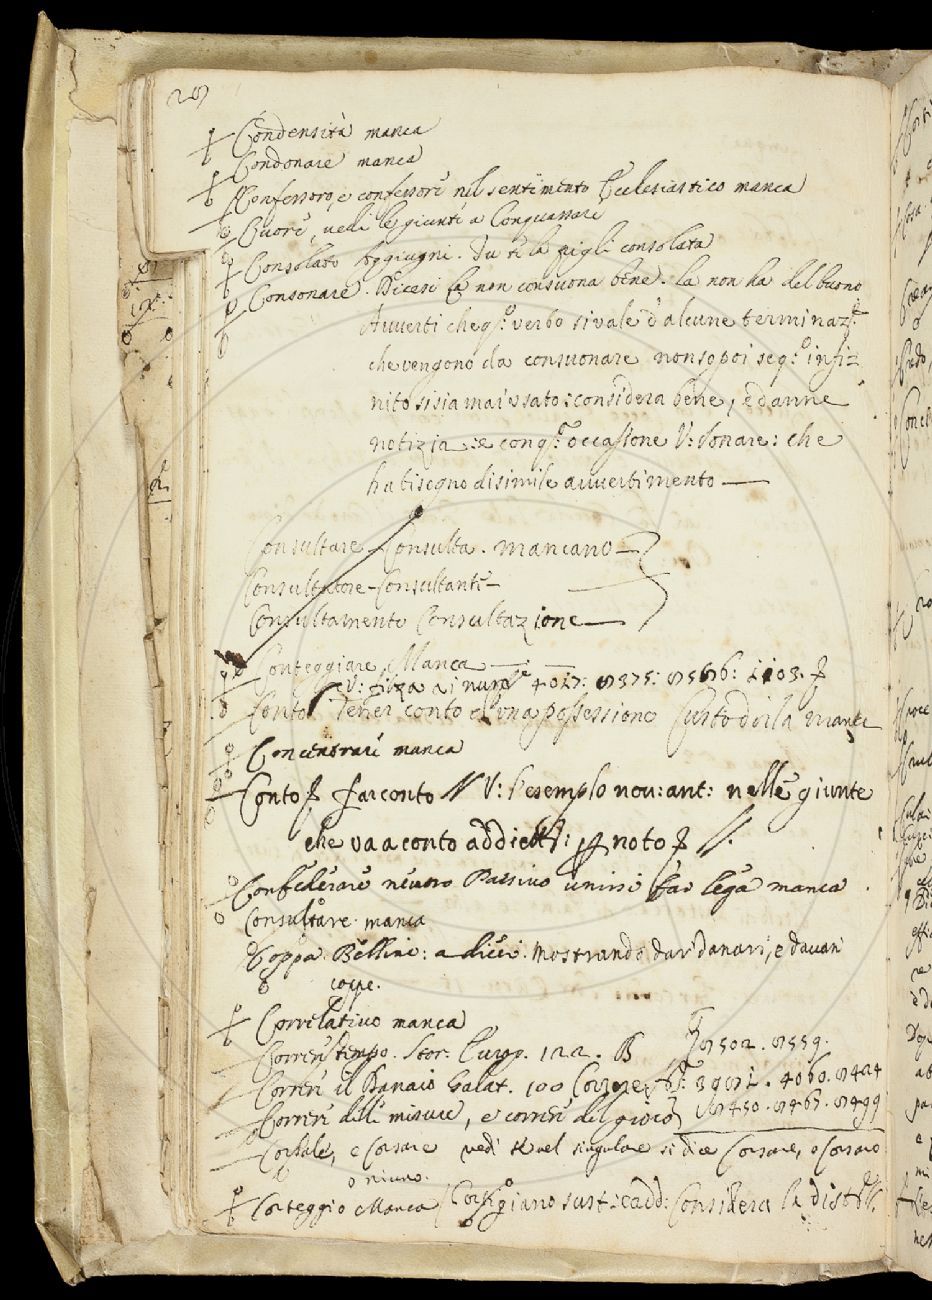 Condensità manca
Condonare manca
Confessoro, e confessore nel sentimento Ecclesiastico manca
Cuore, vedi le giunte a Conquassare
Consolato Aggiugni. Tu te la pigli consolata
Consonare. Dicesi E non consuona bene. la non ha del buono
Avverti che q.o verbo si vale d'alcune terminaz.
che vengono da consuonare non so poi se q.o infi-
nito si sia mai usato: considera bene, e danne
notizia: e con q.a occasione V: sonare: che
ha bisogno di simile avvertimento
Consultare - Consulta. mancano
Consultatore - Consultante -
Consultamento Consultazione
Conteggiare Manca
V: filza a i num. 4017:
Conto. Tener conto d'una possessione Custodirla manca
Concentrare manca
Conto far conto V: l'esemplo nou: ant: nelle giunte
che va a conto addiett: noto
Confederare neutro Passivo unirsi far lega manca
Consultare manca
Coppa Bellinc: a dieci. Mostrando dar danari, e davan
coppe.
Correlativo manca
Correr tempo. Stor: Europ. 122. B
Correre il Danaio Galat. 100
Correre delle misure, e correre del gioco
Corsale, e Corsare vedi se nel singulare si dice Corsare, o Corsaro
o niuno.
Corteggio Manca Cortigiano sust: e add: Considera la